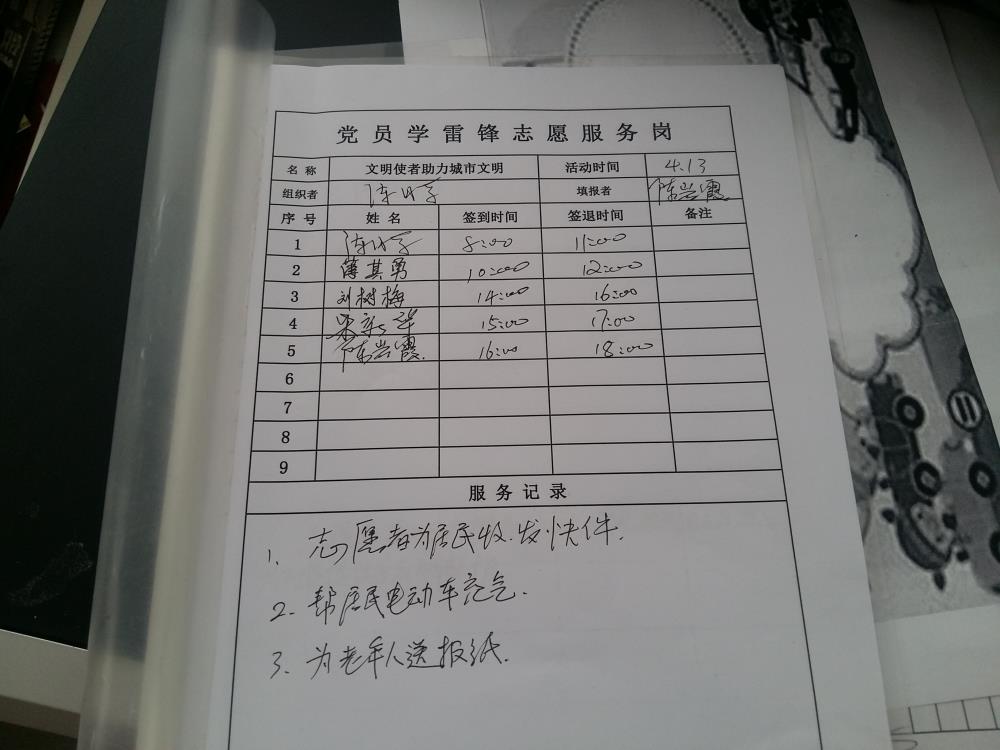 党员学雷锋志愿服务岗
名称 文明使者助力城市文明 活动时间 4.13
组织者 填报者 陈兰霞
序号 姓名 签到时间 签退时间 备注
1 8:00 11:00
2 薄其勇 10:00 12:00
3 刘树梅 14:00 16:00
4 15:00 17:00
5 陈兰霞 16:00 18:00
6
7
8
9
服务记录
1、志愿者为居民收、发快件.
2、帮居民电动车充气.
3、为老年人送报纸.